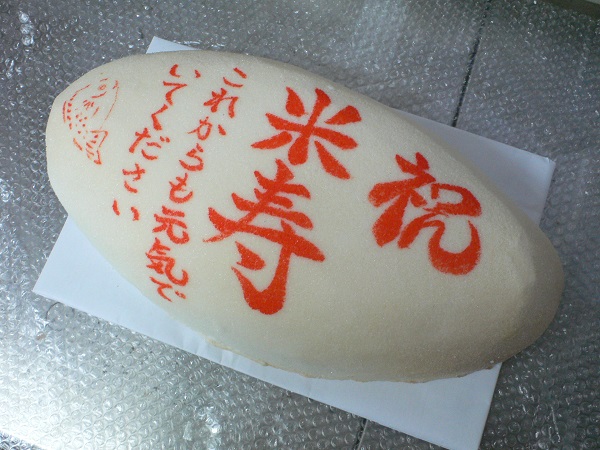 祝
米寿
これからも元気で
いてください